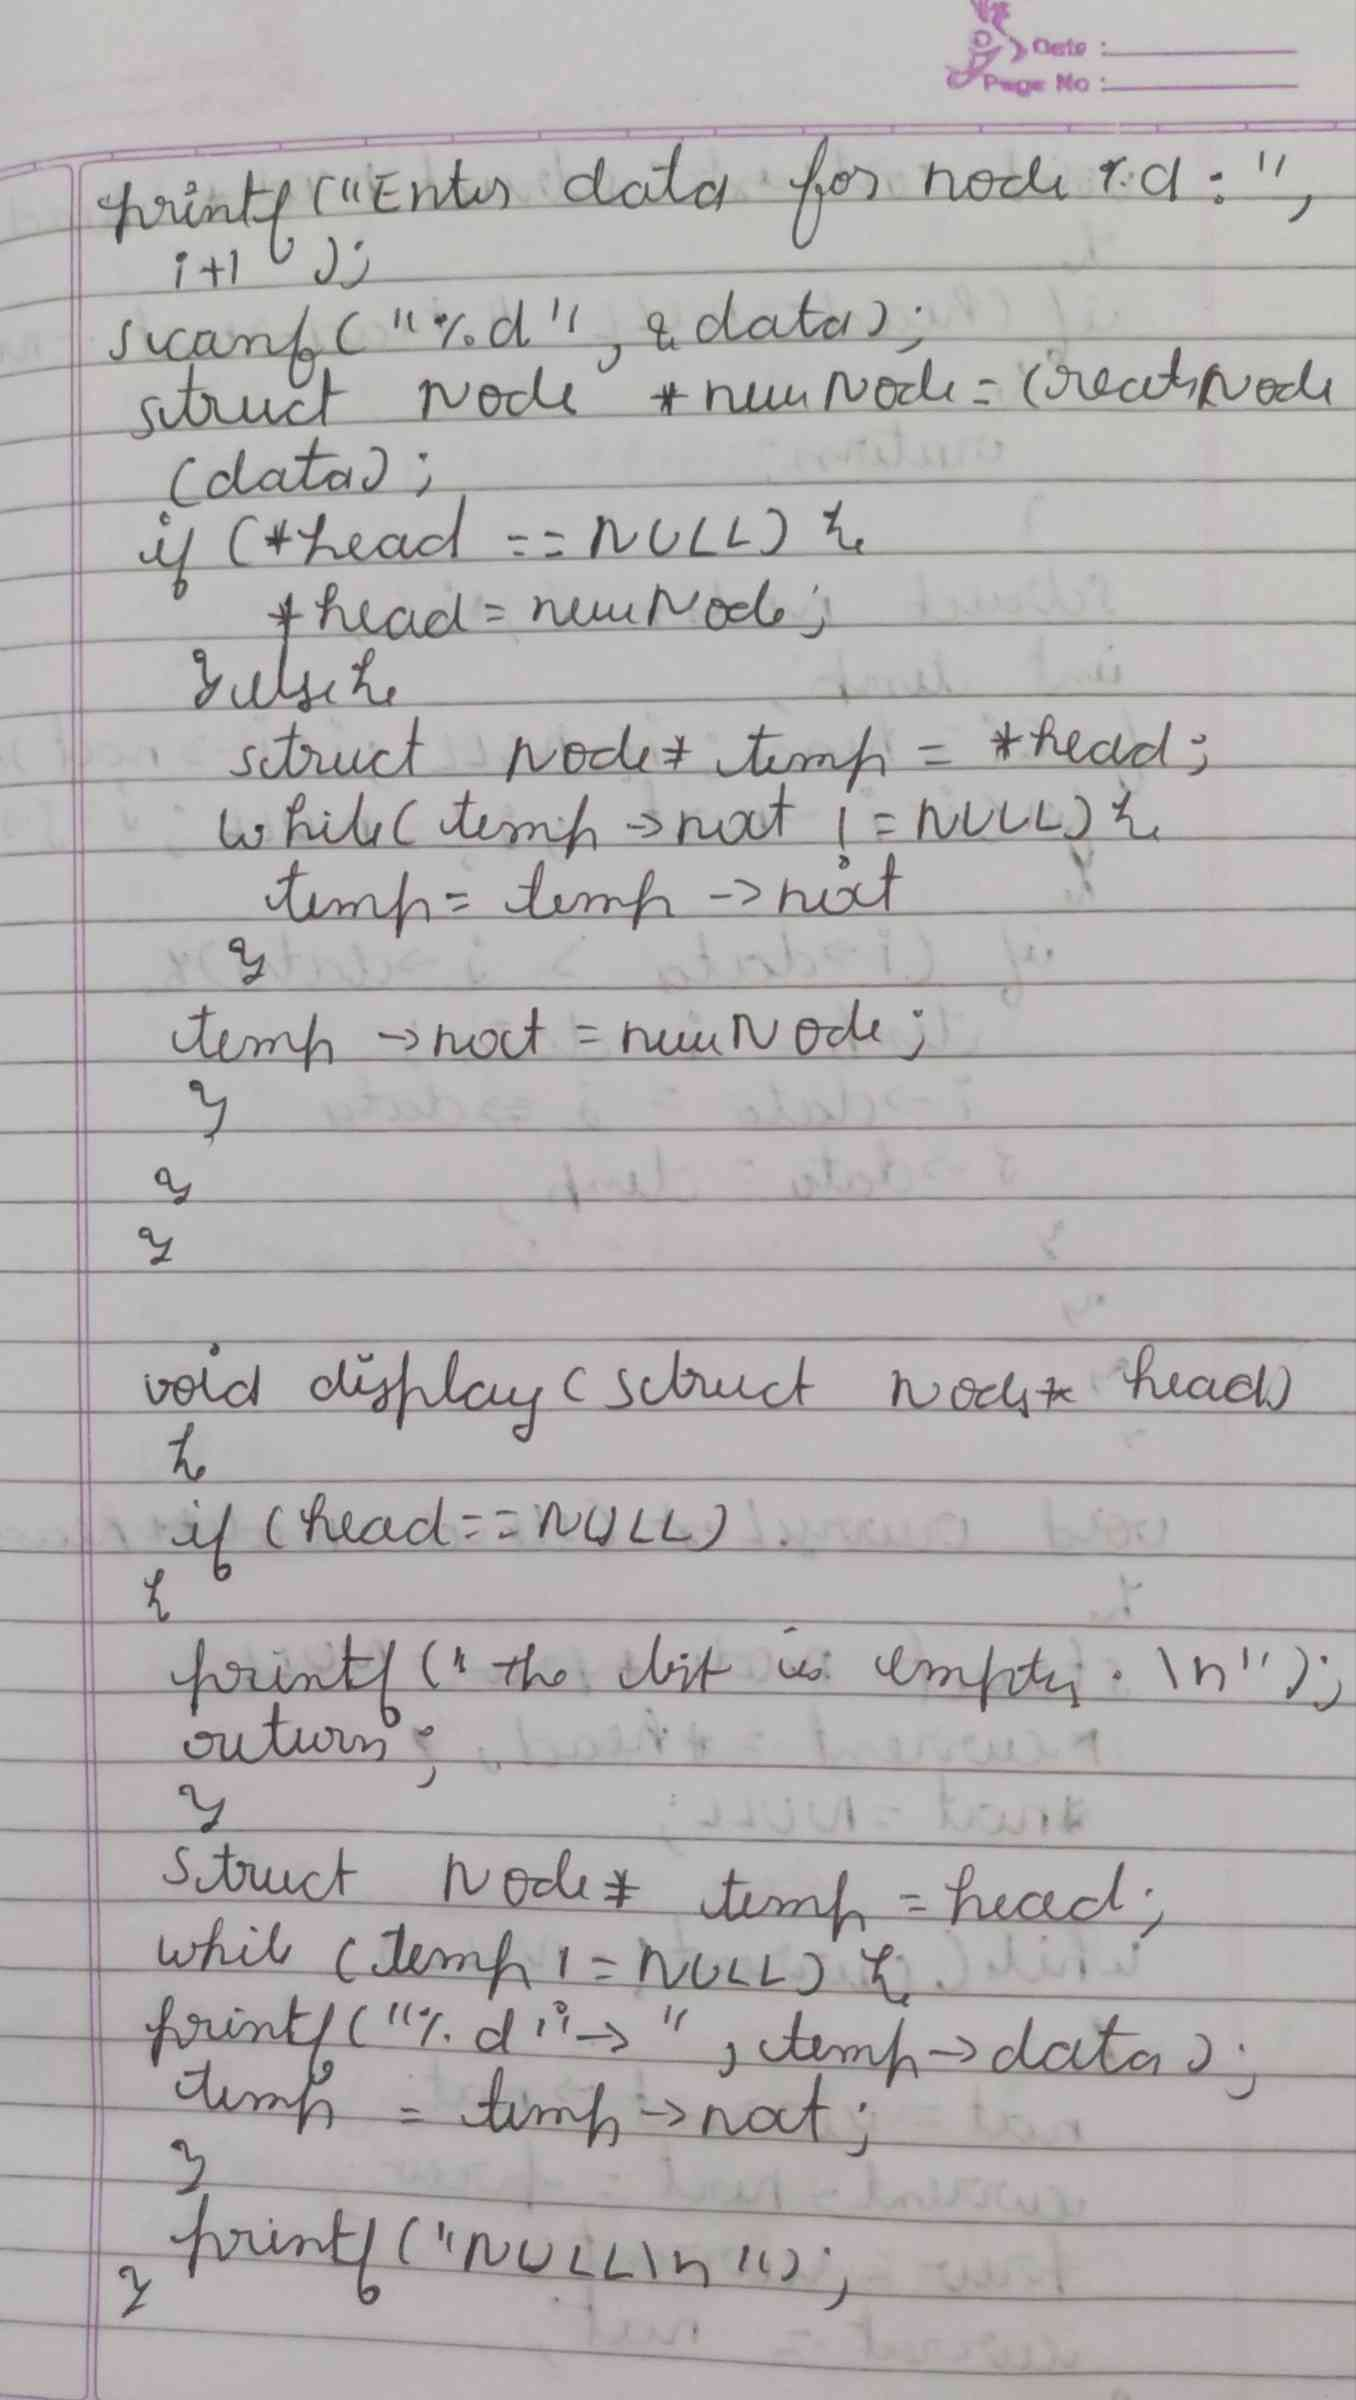 Date :
Page No :
printf ("Enter data for node %d : ",
i+1 );
scanf ( "%d" , &data);
struct Node *newNode = CreateNode
(data);
if (*head == NULL) {
*head = newNode;
} else {
struct Node* temp = *head;
while( temp -> next != NULL) {
temp = temp -> next
}
temp -> next = newNode;
}
}
}
void display ( struct Node* head)
{
if (head == NULL)
{
printf (" the list is empty . \n" );
return ;
}
struct Node* temp = head;
while (temp != NULL) {
printf ( "%d "-> " , temp -> data );
temp = temp -> next;
}
printf ("NULL\n ");
}